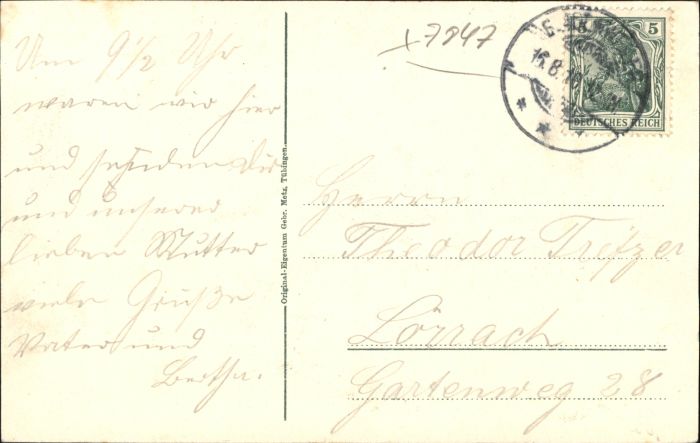 Um 9 1/2 Uhr
waren wir hier
und senden Dir
und unserer
lieben Mutter
viele Grüße
Vater und
Bertha.
Original-Eigentum Gebr. Metz, Tübingen.
x7847
5
DEUTSCHES REICH
Herrn
Theodor Tritzer
Lörrach
Gartenweg 28